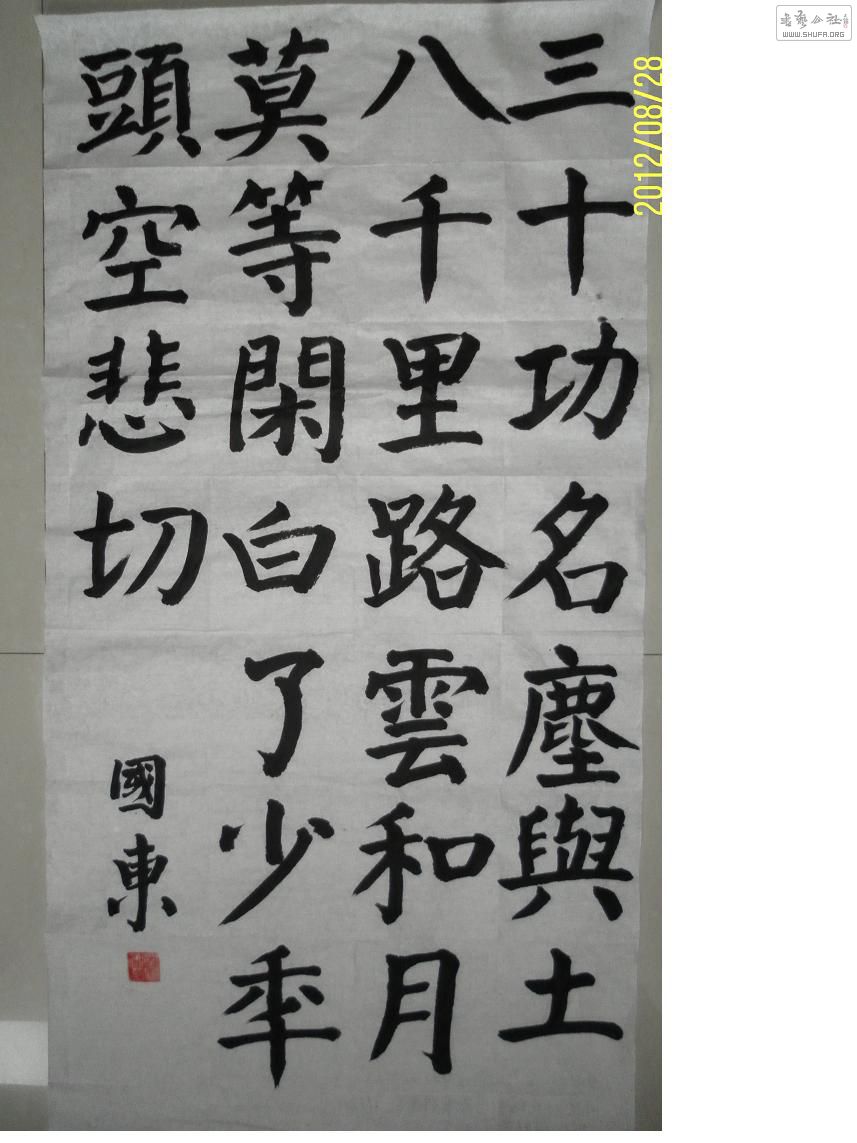 三十功名塵與土
八千里路雲和月
莫等閑白了少年
頭空悲切
國東
2012/08/28
WWW.SHUFA.ORG